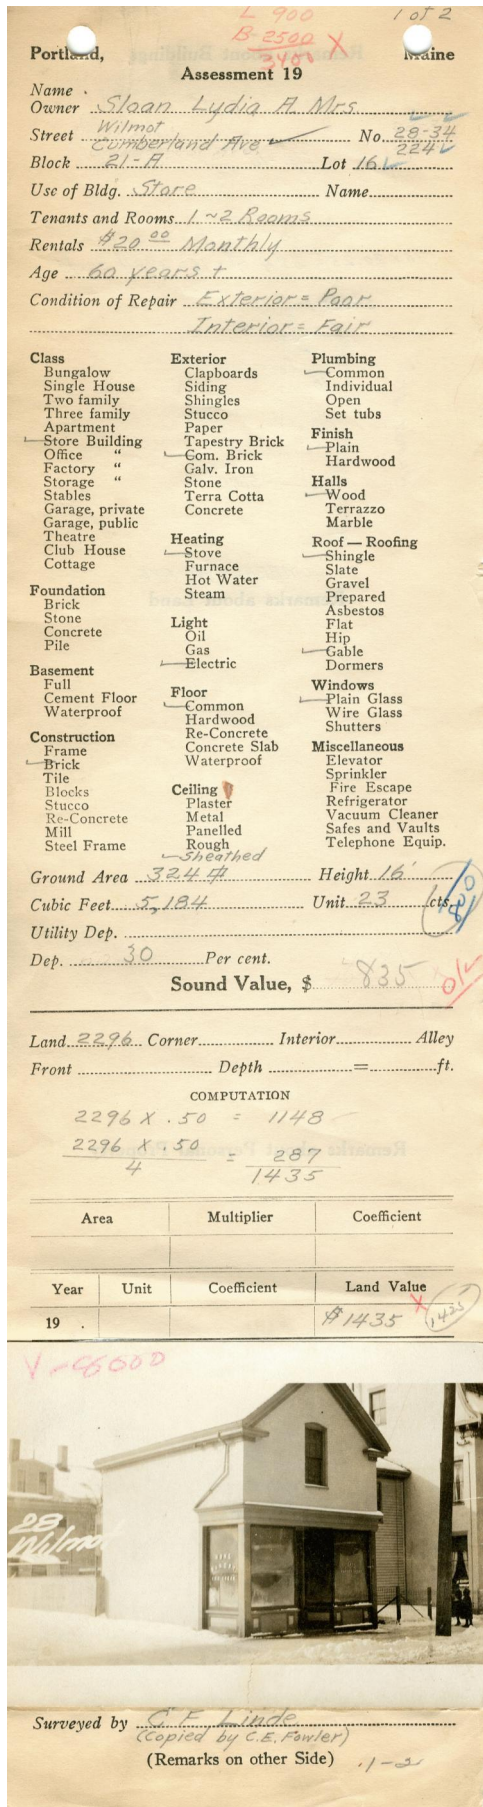 L 900
1 of 2
B-2500 X
3400
Portland, Maine
Assessment 19
Name
Owner Sloan Lydia A Mrs
Street Wilmot No. 28-34
Cumberland Ave 224
Block 21-A Lot 16
Use of Bldg. Store Name
Tenants and Rooms 1 ~ 2 Rooms
Rentals $20 00 Monthly
Age 60 years +
Condition of Repair Exterior = Poor
Interior = Fair
Class
Bungalow
Single House
Two family
Three family
Apartment
Store Building
Office "
Factory "
Storage "
Stables
Garage, private
Garage, public
Theatre
Club House
Cottage
Foundation
Brick
Stone
Concrete
Pile
Basement
Full
Cement Floor
Waterproof
Construction
Frame
Brick
Tile
Blocks
Stucco
Re-Concrete
Mill
Steel Frame
Exterior
Clapboards
Siding
Shingles
Stucco
Paper
Tapestry Brick
Com. Brick
Galv. Iron
Stone
Terra Cotta
Concrete
Heating
Stove
Furnace
Hot Water
Steam
Light
Oil
Gas
Electric
Floor
Common
Hardwood
Re-Concrete
Concrete Slab
Waterproof
Ceiling
Plaster
Metal
Panelled
Rough
Sheathed
Plumbing
Common
Individual
Open
Set tubs
Finish
Plain
Hardwood
Halls
Wood
Terrazzo
Marble
Roof — Roofing
Shingle
Slate
Gravel
Prepared
Asbestos
Flat
Hip
Gable
Dormers
Windows
Plain Glass
Wire Glass
Shutters
Miscellaneous
Elevator
Sprinkler
Fire Escape
Refrigerator
Vacuum Cleaner
Safes and Vaults
Telephone Equip.
Ground Area 324 Height 16'
Cubic Feet 5,184 Unit 23 cts.
Utility Dep.
Dep. 30 Per cent.
Sound Value, $ 835
Land 2296 Corner Interior Alley
Front Depth = ft.
COMPUTATION
2296 X .50 = 1148
2296 X .50 = 287
4
1435
Area Multiplier Coefficient
Year Unit Coefficient Land Value
19 . $1435 X 1435
28
Wilmot
Surveyed by C F Linde
(Copied by C.E. Fowler)
(Remarks on other Side) .1-2